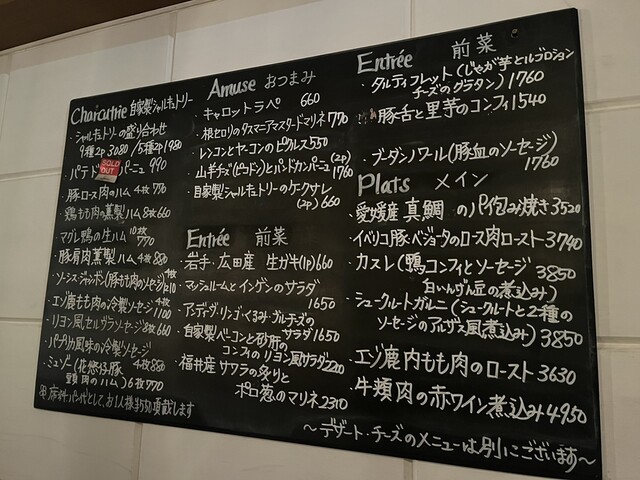 Charcutrie 自家製シャルキュトリー
・シャルキュトリーの盛り合わせ
9種2p 3080 / 5種2p 1980
・パテド パーニュ 990
SOLD OUT
・豚ロース肉のハム 4枚 770
・鶏もも肉の燻製ハム 8枚 660
・マグレ鴨の生ハム 10枚 770
・豚肩肉燻製ハム 4枚 880
・ソーシスジャンボン(豚もも肉のソーセージ) 4枚
・エゾ鹿もも肉の冷製ソーセージ 4枚 1100
・リヨン風セルヴラソーセージ 8枚 660
・パプリカ風味の冷製ソーセージ 4枚 880
・ミュゾー(花悠仔豚
頭肉のハム) 6枚 770
※席料・パン代として、お1人様¥550頂戴します
Amuse おつまみ
・キャロットラペ 660
・根セロリのタスマニアマスタードマリネ 770
・レンコンとヤーコンのピクルス 550
・山羊チーズ(ピコドン)とパンドカンパーニュ (2p) 1760
・自家製シャルキュトリーのケークサレ
(2p) 660
Entrée 前菜
・岩手・広田産 生ガキ(1p) 660
・マッシュルームとインゲンのサラダ
1650
・アンディーヴ・リンゴ・くるみ・ブルーチーズの
サラダ 1650
・自家製ベーコンと砂肝の
コンフィのリヨン風サラダ 2200
・福井産サワラの炙りと
ポロ葱のマリネ 2310
Entrée 前菜
・タルティフレット(じゃが芋とルブロション
チーズのグラタン) 1760
・豚舌と里芋のコンフィ 1540
・ブーダンノワール(豚血のソーセージ)
1760
Plats メイン
・愛媛産 真鯛 のパイ包み焼き 3520
・イベリコ豚・ベジョータのロース肉ロースト 3740
・カスレ(鴨コンフィとソーセージ 3850
白いんげん豆の煮込み)
・シュークルートガルニ(シュークルートと2種の
ソーセージのアルザス風煮込み) 3850
・エゾ鹿内もも肉のロースト 3630
・牛頬肉の赤ワイン煮込み 4950
～デザート・チーズのメニューは別にございます～